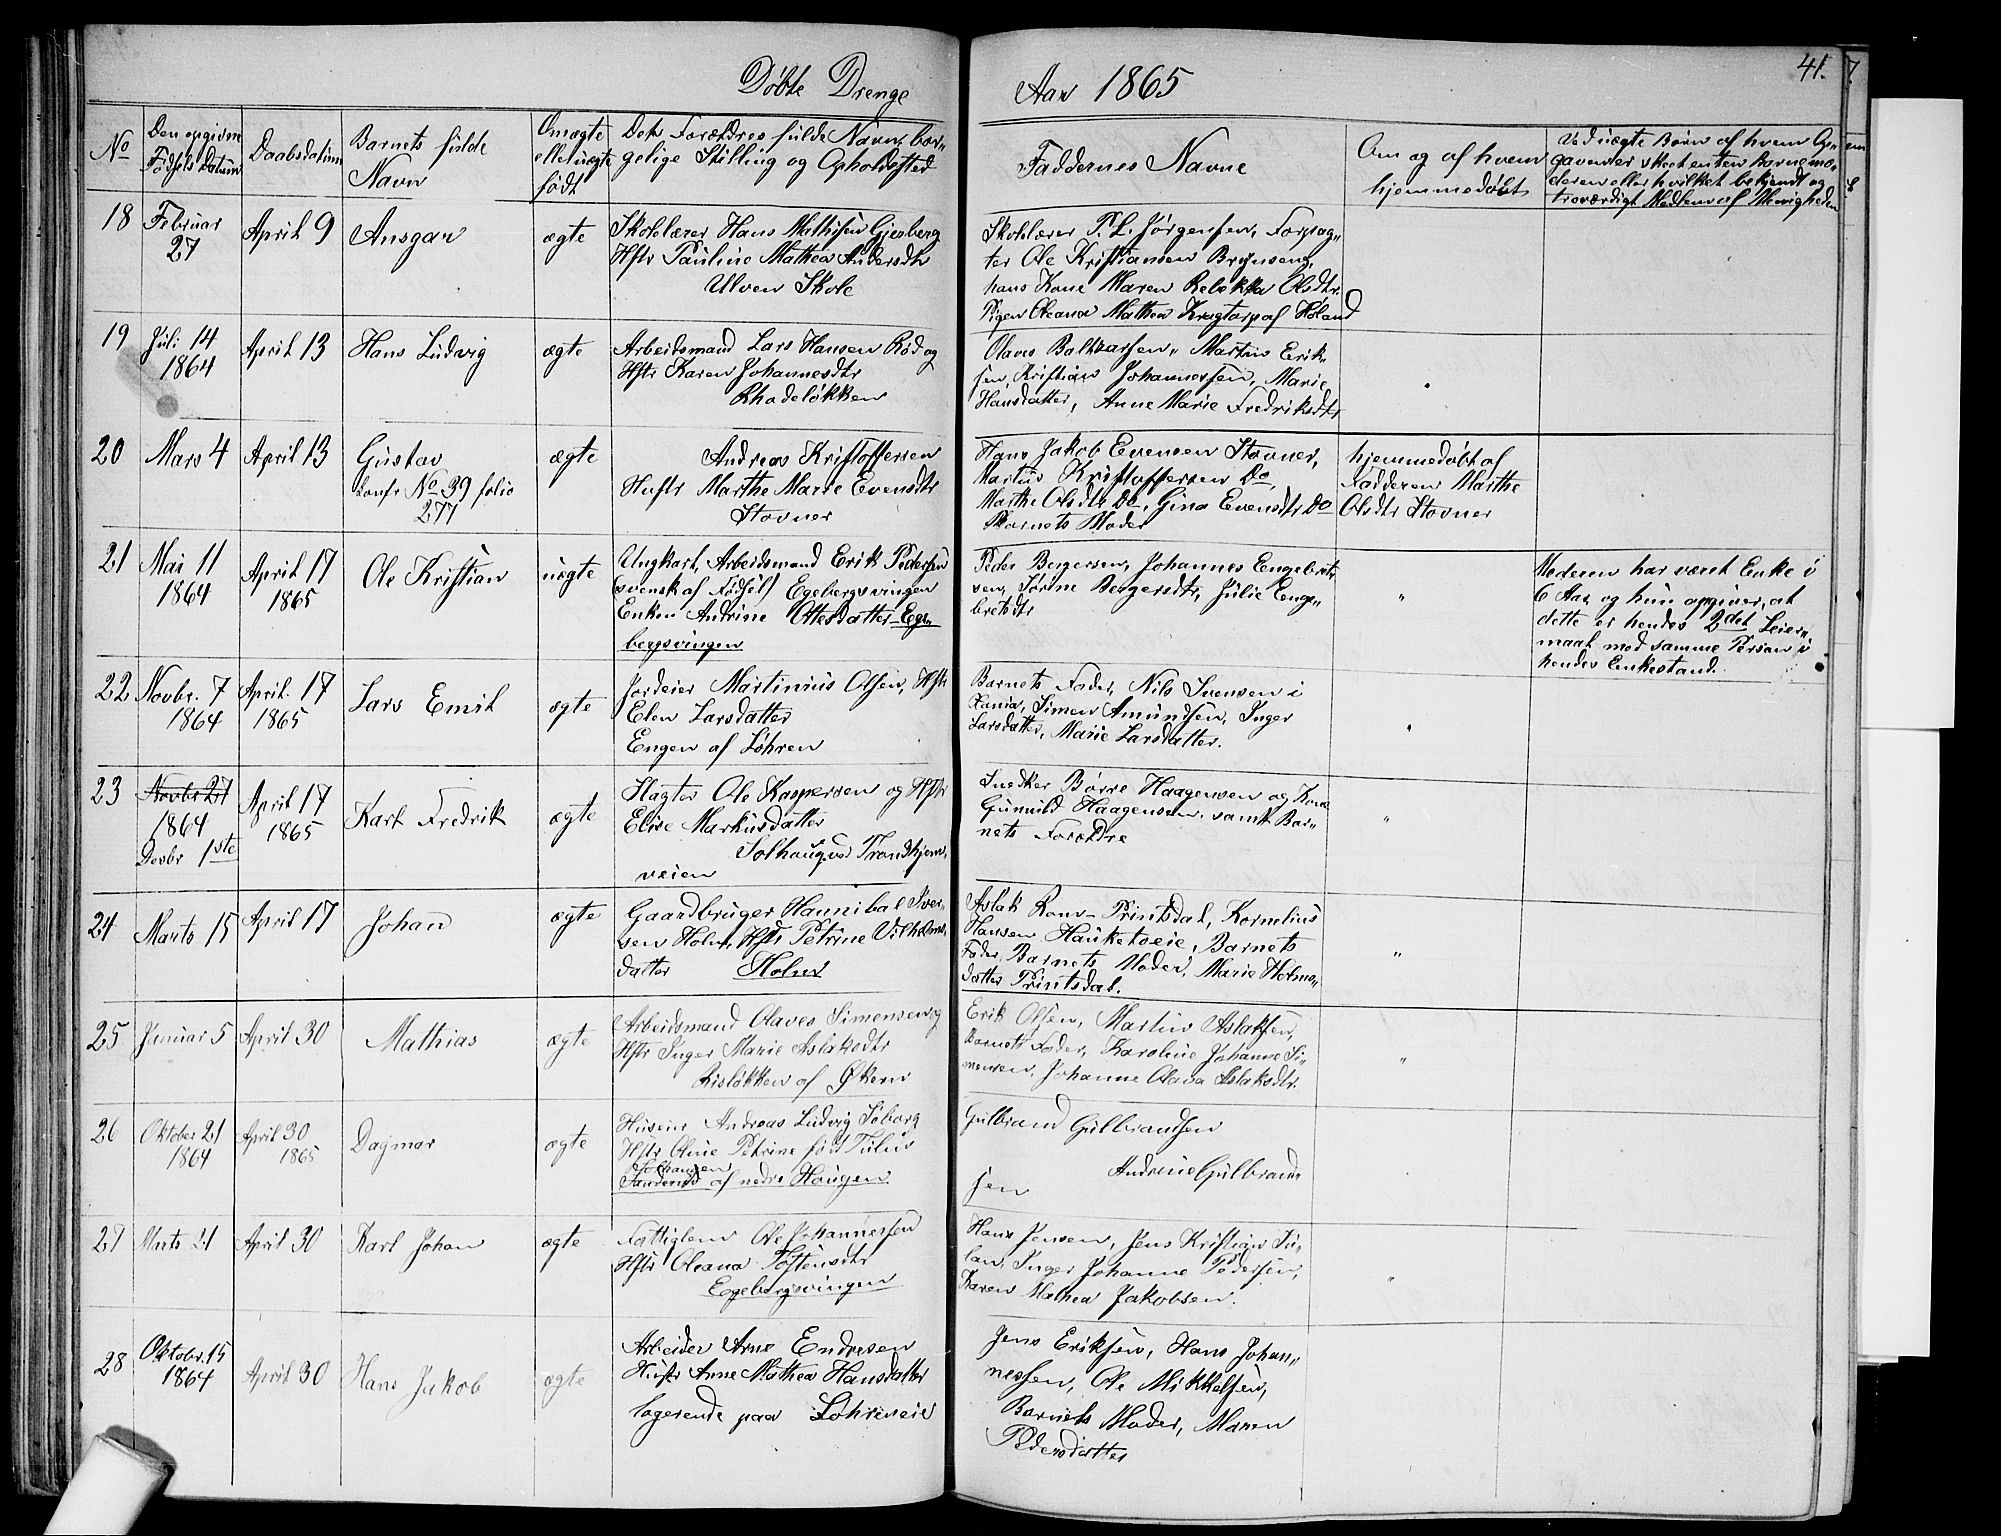 Døbte Drenge
Aar 1865
41.
No
Den opgivne
Fødsels Datum
Daabsdatum
Barnets fulde
Navn
Om ægte
eller uægte
født
Dets Forældres fulde Navn, bor-
gelige Stilling og Opholdssted
Faddernes Navne
Om og af hvem
hjemmedøbt
Ved uægte Børn af hvem Op-
gaven er skeet enten Barnemo-
deren eller hvilket bekjendt og
troværdigt Medlem af Menigheden
18
Februar
27
April 9
Ansgar
ægte
Skolelærer Hans Mathisen Gjesberg
Hstr Pauline Mathea Andersdtr
Ulven Skole
Skolelærer P. L. Jørgensen, Forpag-
ter Ole Kristiansen Brynseng,
hans Kone Maren Rebekka Olsdtr.
Pigen Oleana Mathea Krogtorp af Høland
19
Juli 14
1864
April 13
Hans Ludvig
ægte
Arbeidsmand Lars Hansen Rød og
Hstr Karen Johannesdtr
Rhodeløkken
Olaves Balthzarsen, Martin Erik-
sen, Kristian Johannessen, Marie
Hansdatter, Anne Marie Fredriksdtr
20
Mars 4
April 13
Gustav
Confr No 39 folio
277
ægte
Andreas Kristoffersen
Hustr Marthe Marie Evensdtr
Stovner
Hans Jakob Evensen Stovner,
Martin Kristoffersen Do,
Marthe Olsdtr Do, Gina Evensdtr Do
Barnets Moder
hjemmedøbt af
Fadderen Marthe
Olsdtr Stovner
21
Mai 11
1864
April 17
1865
Ole Kristian
uægte
Ungkarl, Arbeidsmand Erik Pedersen
(svensk af Fødsel) Egebergsvingen
Enken Andrine Ottesdatter Ege-
bergsvingen
Peder Bergersen, Johannes Engebret-
sen, Sørine Bergersdtr, Julie Enge-
bretsdtr
"
Moderen har været Enke i
6 Aar og hun opgiver, at
dette er hendes 2det Leier-
maal med samme Person i
hendes Enkestand.
22
Novbr. 7
1864
April. 17
1865
Lars Emil
ægte
Jordeier Martinius Olsen, Hstr
Elen Larsdatter
Engen af Løhren
Barnets Fader, Nils Svensen i
Xania, Simen Amundsen, Inger
Larsdatter, Marie Larsdatter.
"
23
Novbr 27
1864
Decbr 1ste
April 17
1865
Karl Fredrik
ægte
Slagter Ole Kaspersen og Hstr
Elise Markusdatter
Solhaug ved Trondhjems-
veien
Snedker Børre Haagensen og Kone
Gunnild Haagensen, samt Bar-
nets Forældre
"
24
Marts 15
April 17
Johan
ægte
Gaardbruger Hannibal Iver-
sen Holm, Hstr Petrine Vilhelms-
datter Holm
Aslak Prinsdal, Kornelius
Hansen Hauketoeie, Barnets
Fader, Barnets Moder, Marie
datter Prinsdal.
"
25
Januar 5
April 30
Mathias
ægte
Arbeidsmand Olaves Simensen og
Hstr Inger Marie Aslaksdtr
Risløkken af Økern
Erik Olsen, Martin Aslaksen,
Barnets Fader, Karoline Johanne Si-
mensen, Johanne Olava Aslaksdtr.
"
26
Oktober 21
1864
April 30
1865
Dagmar
ægte
Huseier Andreas Ludvig Soborg
Hstr Oline Petrine født Tulus
Solhaugen
af nedre Haugen.
Gulbrand Gulbrandsen
Andrine Gulbrand-
sen
27
Marts 21
April 30
Karl Johan
ægte
Fattiglem Ole Johannessen
Hstr Oleana Toftensdtr
Egebergsvingen
Hans Jensen, Jens Kristian Ju-
lan, Inger Johanne Pedersen,
Karen Mathea Jakobsen.
"
28
Oktobr. 15
1864
April 30
Hans Jakob
ægte
Arbeider Arne Endresen
Hustr Anne Mathea Hansdatter
logerende paa Løhreneie
Jens Eriksen, Hans Johan-
nessen, Ole Mikkelsen,
Barnets Moder, Maren
Pedersdatter